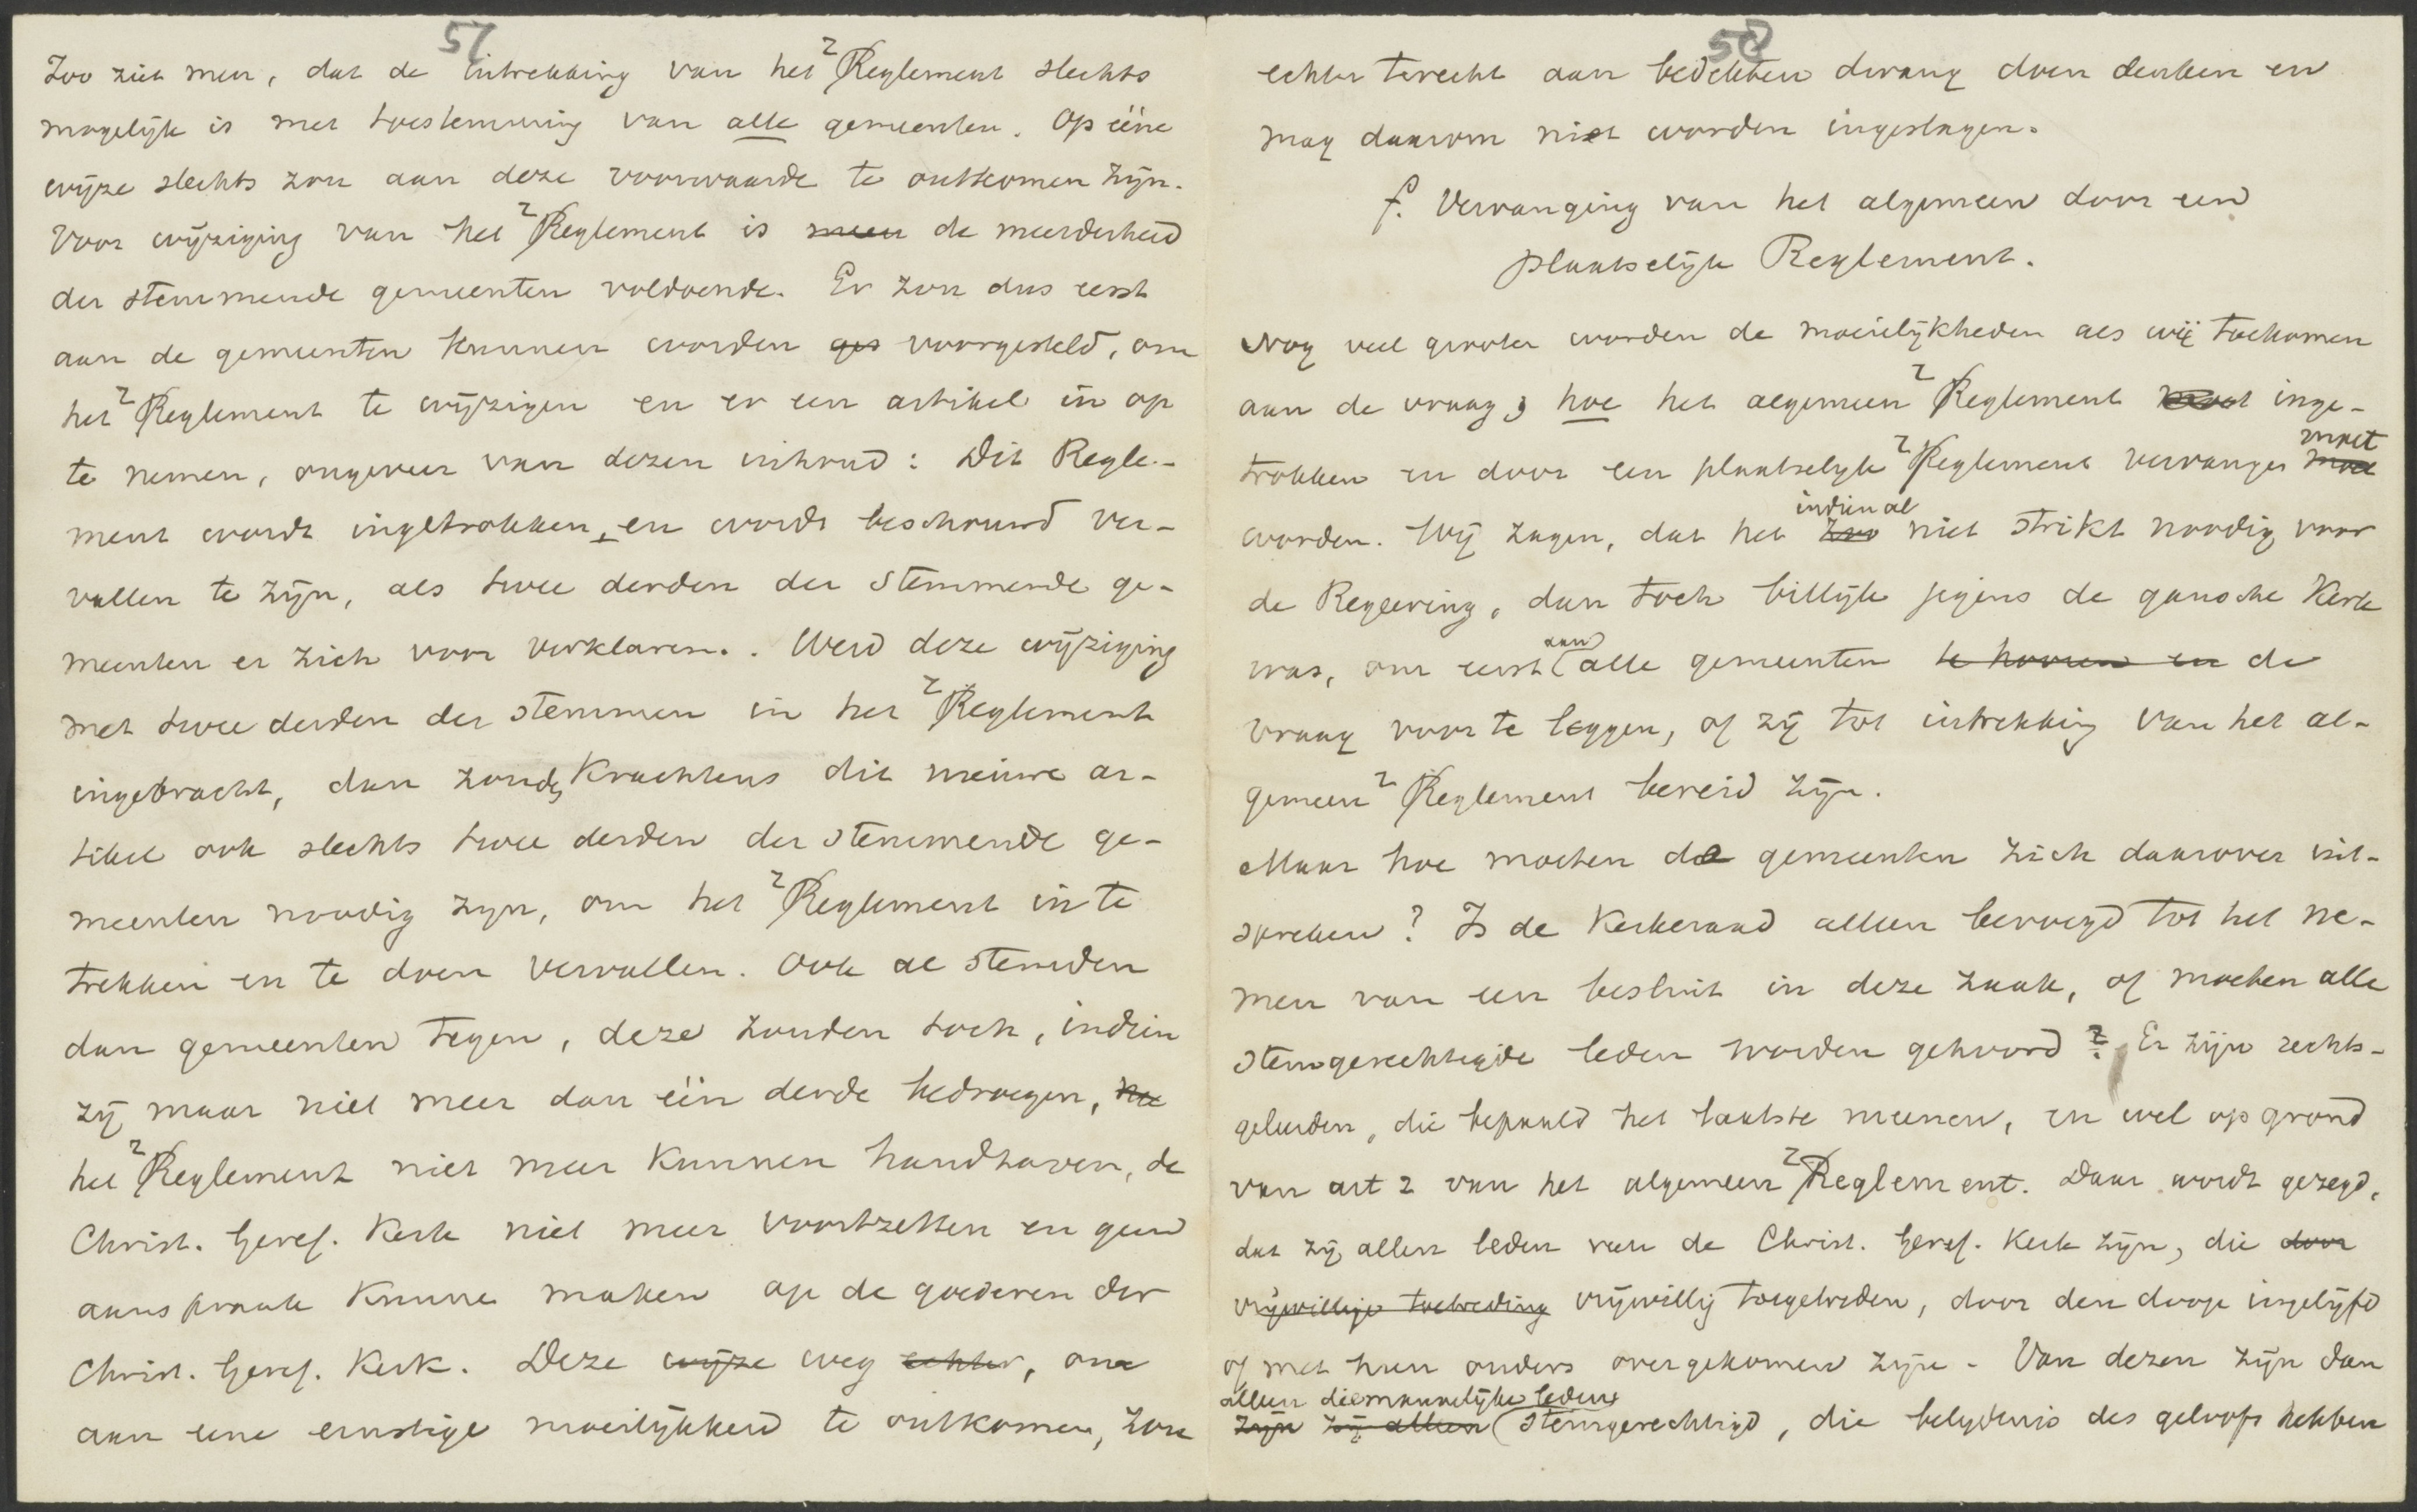 57
Zoo ziet men, dat de intrekking van het Reglement slechts
mogelijk is met toestemming van alle gemeenten. Op ééne
wijze slechts zou aan deze voorwaarde te ontkomen zijn.
Voor wijziging van het Reglement is meer de meerderheid
der stemmende gemeenten voldoende. Er zou dus eerst
aan de gemeenten kunnen worden ges voorgesteld, om
het Reglement te wijzigen en er een artikel in op
te nemen, ongeveer van dezen inhoud: Dit Regle-
ment wordt ingetrokken, en wordt beschouwd ver-
vallen te zijn, als twee derden der stemmende ge-
meenten er zich voor verklaren. Werd deze wijziging
met twee derden der stemmen in het Reglement
ingebracht, dan zouden krachtens dit nieuwe ar-
tikel ook slechts twee derden der stemmende ge-
meenten noodig zijn, om het Reglement in te
trekken en te doen vervallen. Ook al stemden
dan gemeenten tegen, deze zouden toch, indien
zij maar niet meer dan één derde bedroegen,
het Reglement niet meer kunnen handhaven, de
Christ. Geref. Kerk niet meer voortzetten en geen
aanspraak kunnen maken op de goederen der
Christ. Geref. Kerk. Deze wijze weg echter, om
aan eene ernstige moeilijkheid te ontkomen, zou
58
echter terecht aan bedekten dwang doen denken en
mag daarom niet worden ingeslagen.
f. Vervanging van het algemeen door een
plaatselijk Reglement.
Nog veel grooter worden de moeilijkheden als wij toekomen
aan de vraag, hoe het algemeen Reglement moet inge-
trokken en door een plaatselijk Reglement vervangen moet
worden. Wij zagen, dat het indien al niet strikt noodig voor
de Regeering, dan toch billijk jegens de gansche Kerk
was, om eerst aan alle gemeenten te hooren en de
vraag voor te leggen, of zij tot intrekking van het al-
gemeen Reglement bereid zijn.
Maar hoe moeten de gemeenten zich daarover uit-
spreken? Is de Kerkeraad alleen bevoegd tot het ne-
men van een besluit in deze zaak, of moeten alle
stemgerechtigde leden worden gehoord? Er zijn rechts-
geleerden, die bepaald het laatste meenen, en wel op grond
van art 2 van het algemeen Reglement. Daar wordt gezegd,
dat zij allen leden van de Christ. Geref. Kerk zijn, die door
vrijwillige toetreding vrijwillig toegetreden, door den doop ingelijfd
of met hun ouders overgekomen zijn. Van dezen zijn dan
alleen die mannelijke leden
zijn zij alleen stemgerechtigd, die belijdenis des geloofs hebben